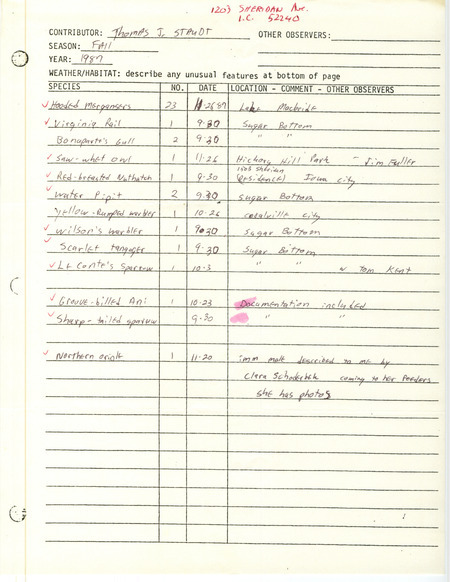 1203 SHERIDAN Ave.
I.C. 52240
CONTRIBUTOR: Thomas J. STAUDT OTHER OBSERVERS:
SEASON: FAll
YEAR: 1987
WEATHER/HABITAT: describe any unusual features at bottom of page
SPECIES NO. DATE LOCATION - COMMENT - OTHER OBSERVERS
✓ Hooded Mergansers 23 11-26 87 Lake Macbride
✓ Virginia Rail 1 9-30 Sugar Bottom
Bonaparte's Gull 2 9-30 " "
✓ Saw-whet owl 1 11-26 Hickory Hill Park - Jim Fuller
1203 Sheridan
✓ Red-breasted Nuthatch 1 9-30 (Residence) Iowa City
✓ Water Pipit 2 9-30 Sugar Bottom
Yellow-Rumped warbler 1 10-26 Coralville City
✓ Wilson's warbler 1 9-30 Sugar Bottom
✓ Scarlet tanager 1 9-30 Sugar Bottom
✓ Le Conte's Sparrow 1 10-3 " " w Tom Kent
✓ Groove-billed Ani 1 10-23 Documentation included
✓ Sharp-tailed sparrow 9-30 " "
✓ Northern oriole 1 11-20 imm male described to me by
Clara coming to her feeders
SHE has photos